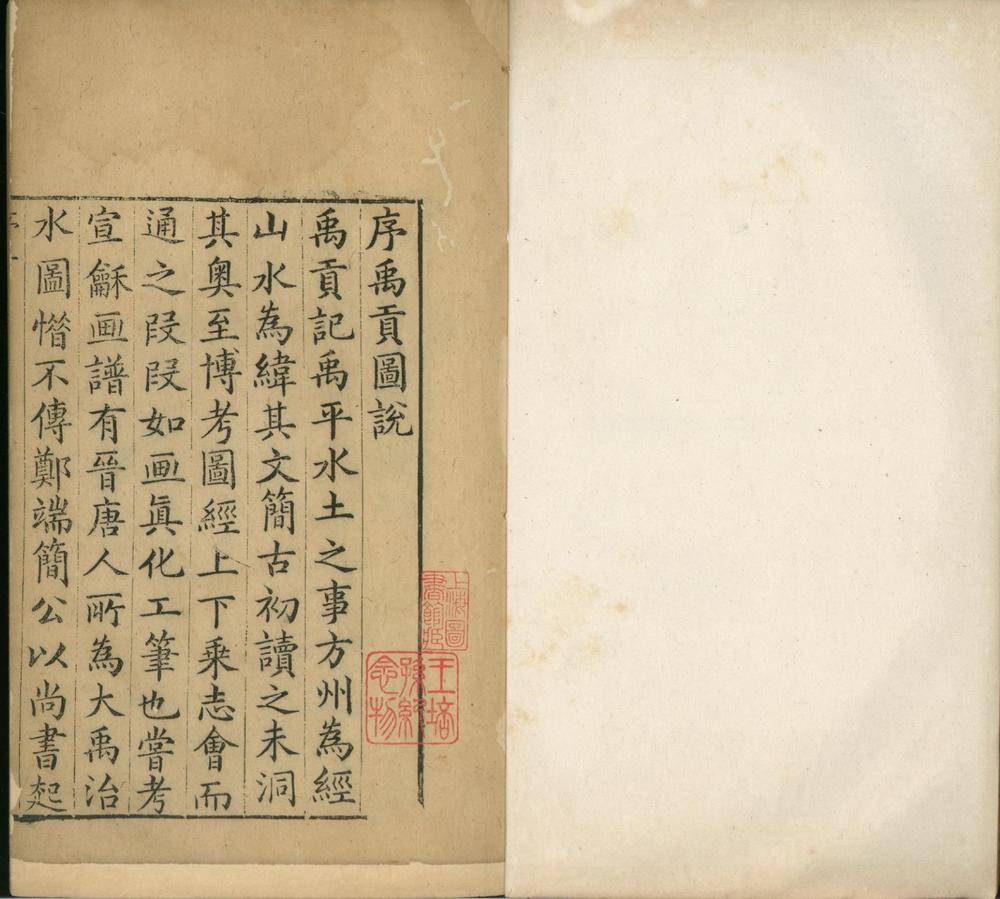 序禹貢圖說
禹貢記禹平水土之事方州為經
山水為緯其文簡古初讀之未洞
其奧至博考圖經上下乘志會而
通之段段如画眞化工筆也嘗考
宣龢画譜有晉唐人所為大禹治
水圖憯不傳鄭端簡公以尚書起
上海圖書館藏
王培孫紀念物